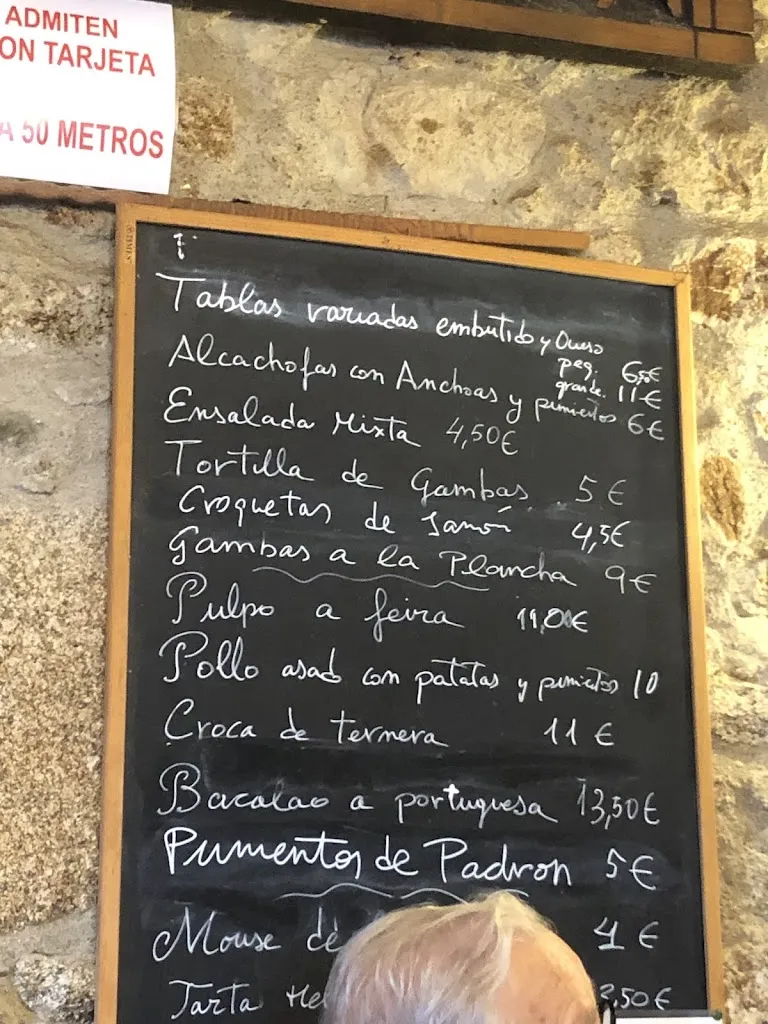 ADMITEN
ON TARJETA
A 50 METROS
Tablas variadas embutido y Queso
peq. 6,50€
grande. 11€
Alcachofas con Anchoas y pimientos 6€
Ensalada Mixta 4,50€
Tortilla de Gambas 5€
Croquetas de Jamón 4,5€
Gambas a la Plancha 9€
Pulpo a feira 11,00€
Pollo asado con patatas y pimientos 10
Croca de ternera 11€
Bacalao a portuguesa 13,50€
Pumentos de Padron 5€
Mouse de 4€
Tarta He ,50€